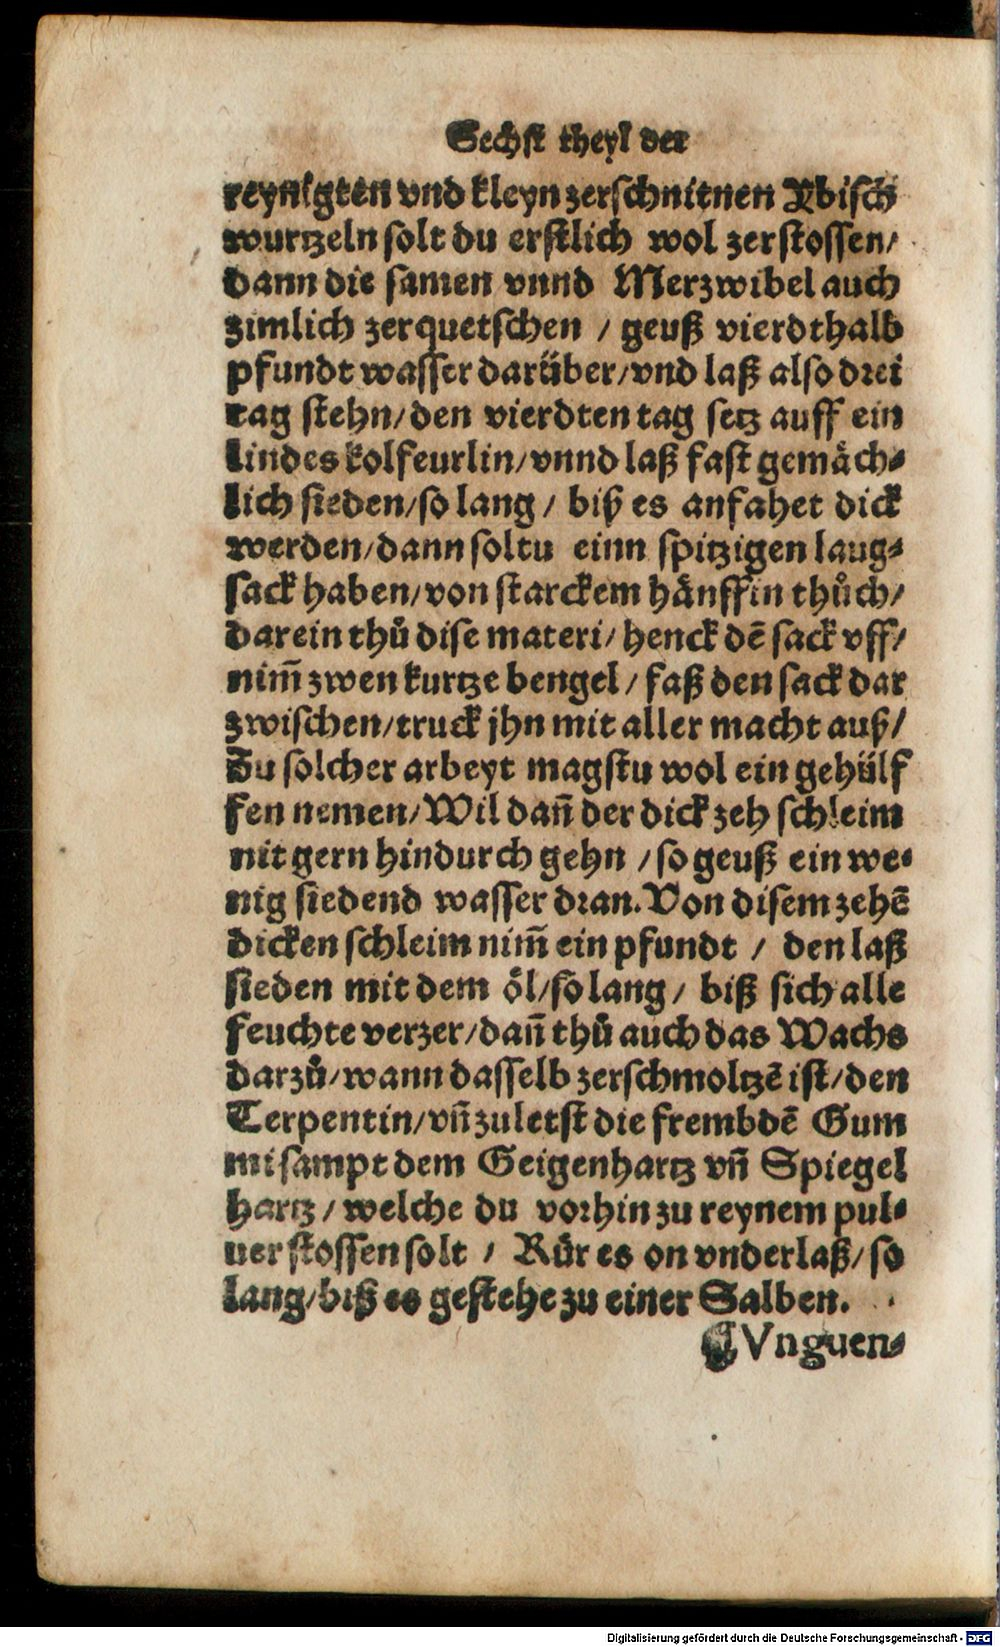 Sechst theyl der
reynigten vnd kleyn zerschnitnen Ybisch
wurtzeln solt du erstlich wol zerstossen/
dann die samen vnnd Merzwibel auch
zimlich zerquetschen / geuß vierdthalb
pfundt wasser darüber/vnd laß also drei
tag stehn/den vierdten tag setz auff ein
lindes kolfeurlin/vnnd laß fast gemäch⸗
lich sieden/so lang / biß es anfahet dick
werden/dann soltu einn spitzigen laug⸗
sack haben/von starckem hänffin thůch/
darein thů dise materi/henck dē sack vff/
nim̄ zwen kurtze bengel/faß den sack dar
zwischen/truck jhn mit aller macht auß/
Zu solcher arbeyt magstu wol ein gehülf
fen nemen/Wil dañ der dick zeh schleim
nit gern hindurch gehn /so geuß ein we⸗
nig siedend wasser dran. Von disem zehē
dicken schleim nim̄ ein pfundt / den laß
sieden mit dem öl/so lang/ biß sich alle
feuchte verzer/dañ thů auch das Wachs
darzů/wann dasselb zerschmoltzē ist/den
Terpentin/vñ zuletst die frembdē Gum
mi sampt dem Geigenhartz vñ Spiegel
hartz/welche du vorhin zu reynem pul⸗
uer stossen solt / Rür es on vnderlaß/so
lang/biß es gestehe zu einer Salben.
❡Vnguen⸗
Digitalisierung gefördert durch die Deutsche Forschungsgemeinschaft - DFG